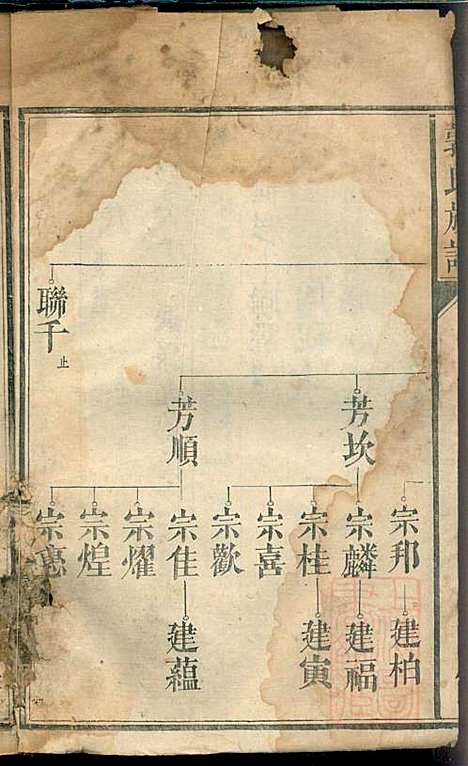 郭氏族譜
聯千 止
芳坎
芳順
宗邦
宗麟
宗桂
宗喜
宗歡
宗佳
宗耀
宗煌
建柏
建福
建寅
建蘊